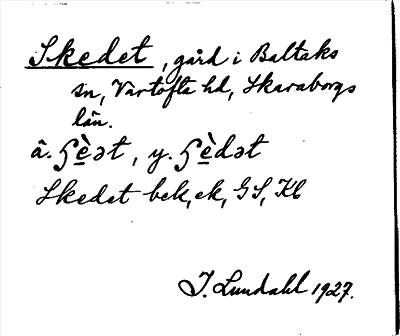 Skedet, gård i Baltaks
sn, Vartofta hd, Skaraborgs
län.
ä. ʃè̱ət, y. ʃè̱dət
Skedet bek, ek, GS, Kb
I. Lundahl 1927.